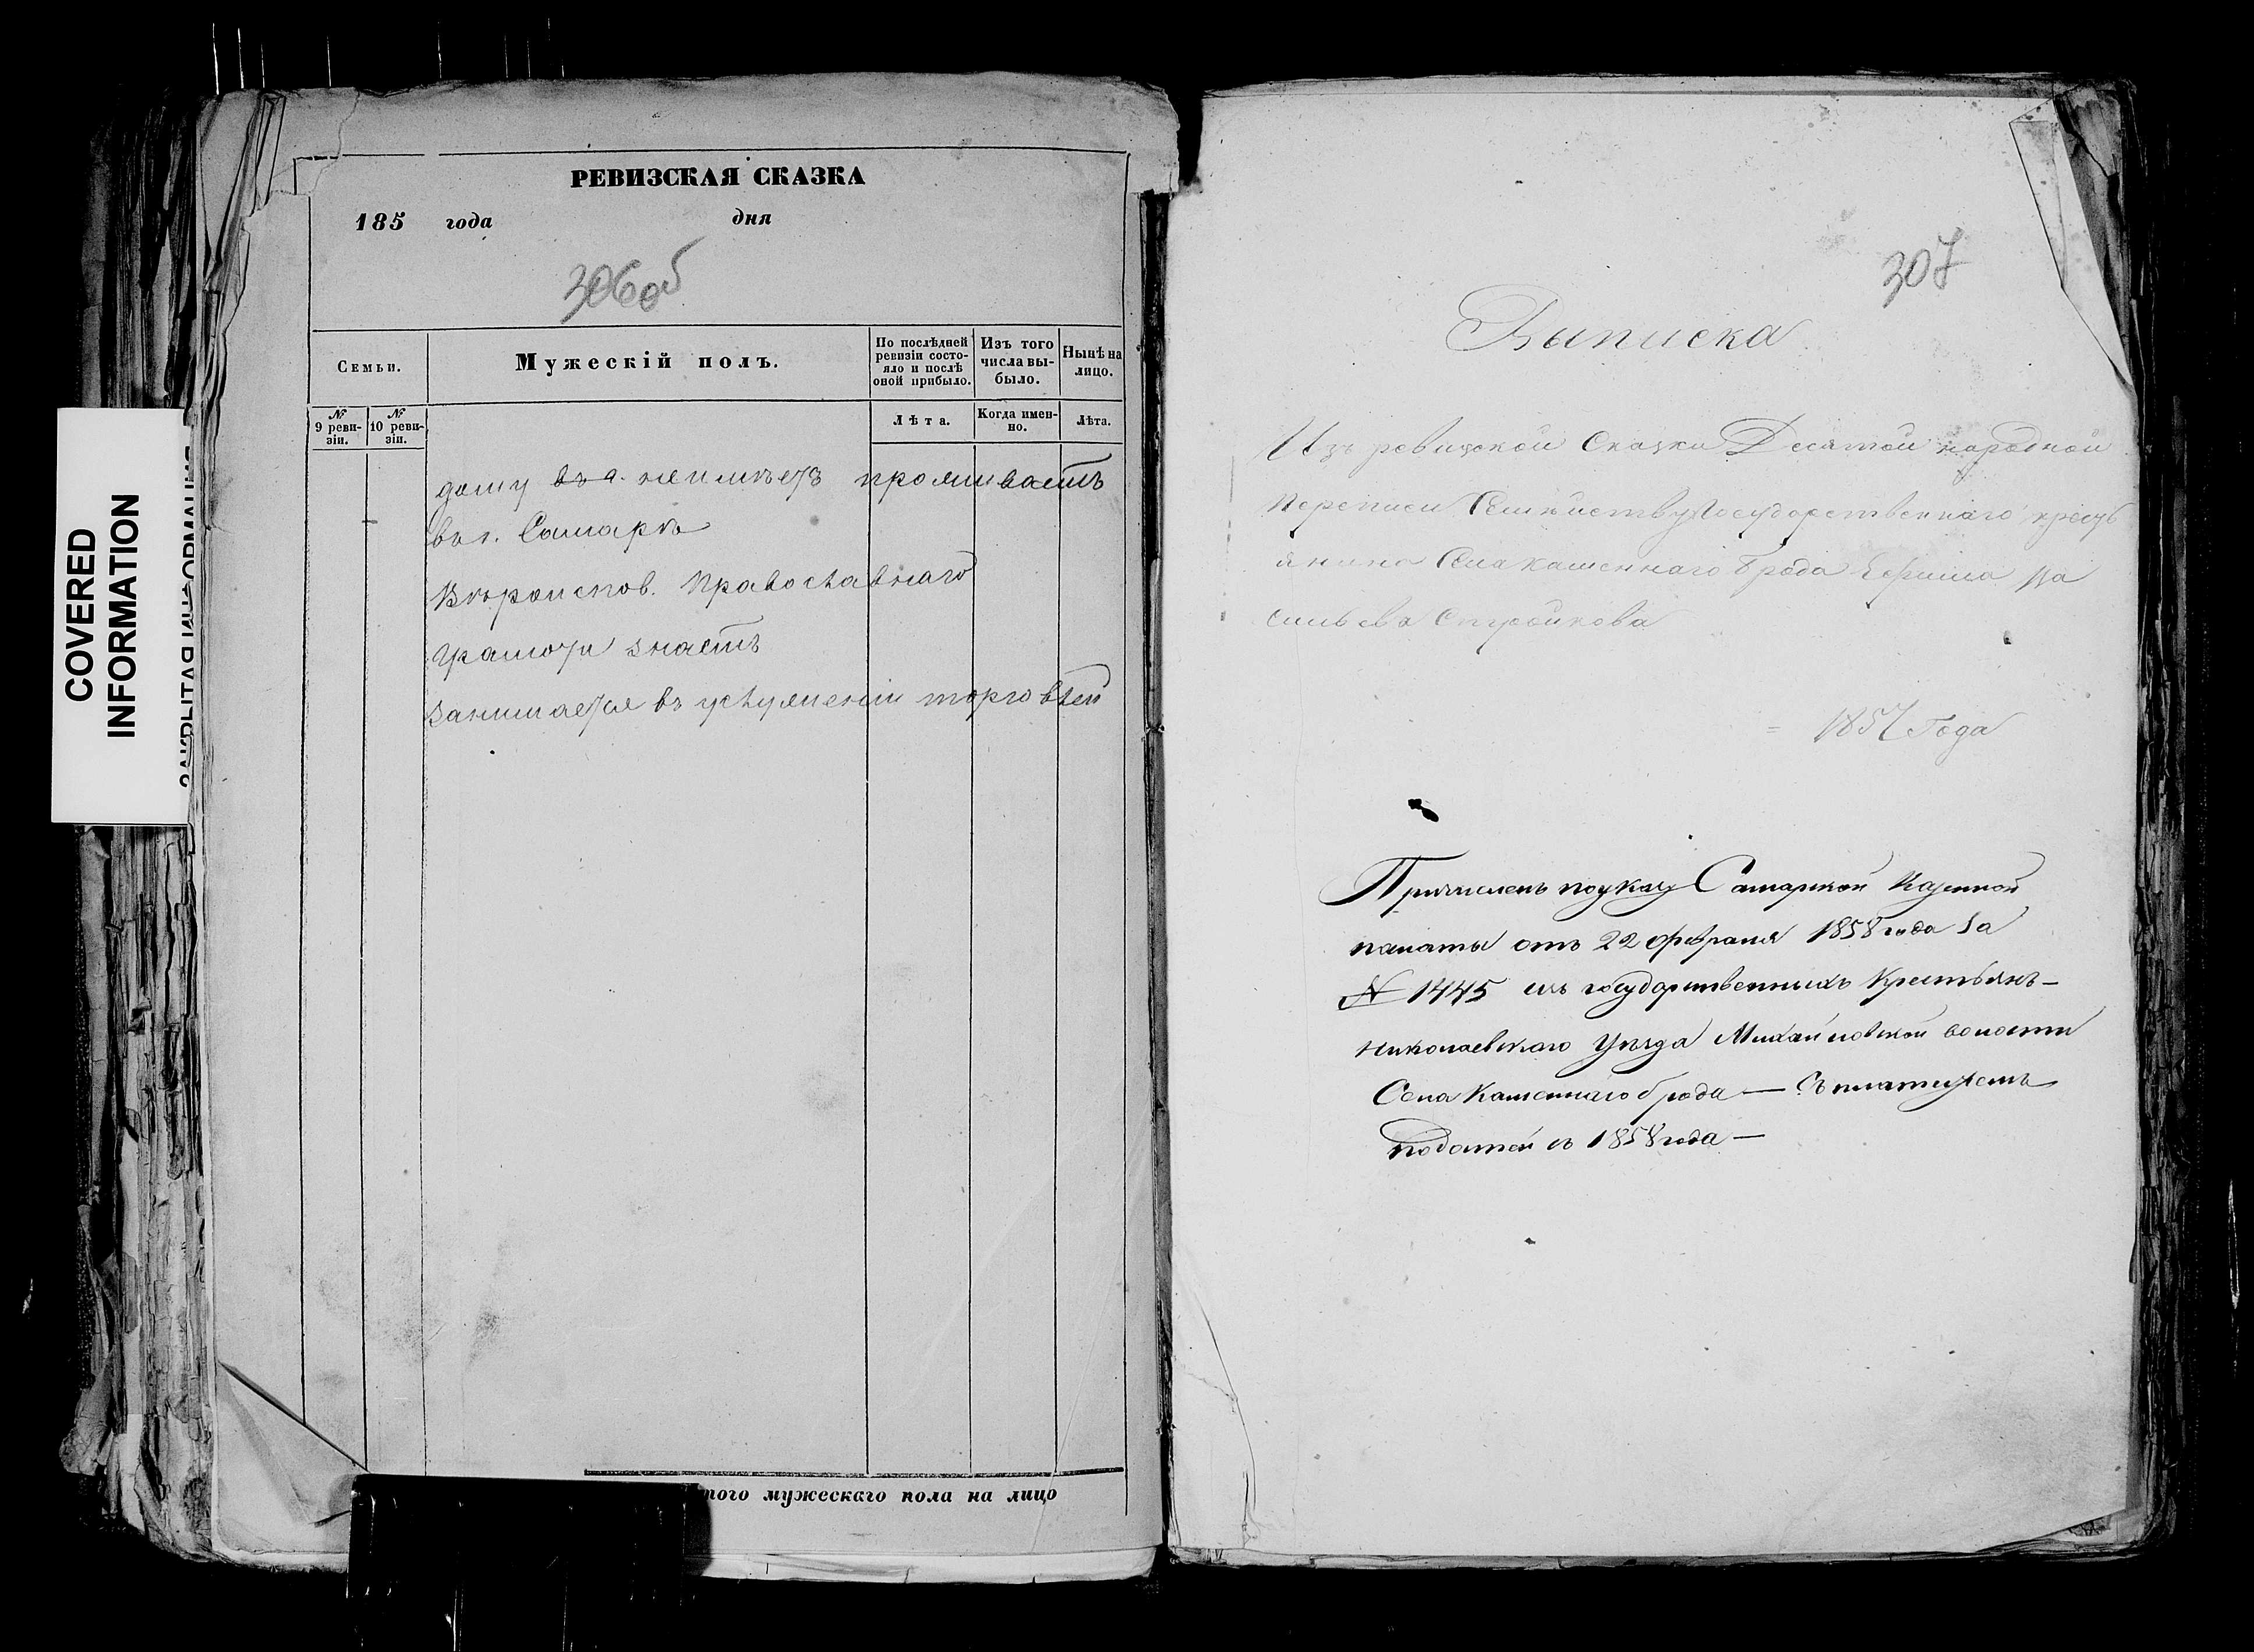 COVERED
INFORMATION
РЕВИЗСКАЯ СКАЗКА
185 года дня
306об
Семьи.
Мужескій полъ.
По послѣдней ревизіи состояло и послѣ оной прибыло.
Изъ того числа выбыло.
Нынѣ на лицо.
№ 9 ревизіи.
№ 10 ревизіи.
Лѣта.
Когда именно.
Лѣта.
дому въ г. не имѣетъ проживаетъ
въ г. Самарѣ
Вѣроиспов. Православнаго
грамоти знаетъ
Занимается въ услуженіи торговлей
того мужескаго пола на лицо
307
Выписка
Изъ ревизской Сказки Десятой народной
переписи Семѣйству Государственнаго кресть
янина Села каменнаго Брода Ефима Ва
сильева
1857 Года
Причисленъ по указу Самарской Казенной
палаты отъ 22 февраля 1858 года За
№ 1445 изъ государственныхъ Крестьянъ –
Николаевскаго Уѣзда Михайловской волости
Села Каменнаго брода — Съ платежемъ
податей съ 1858 года —